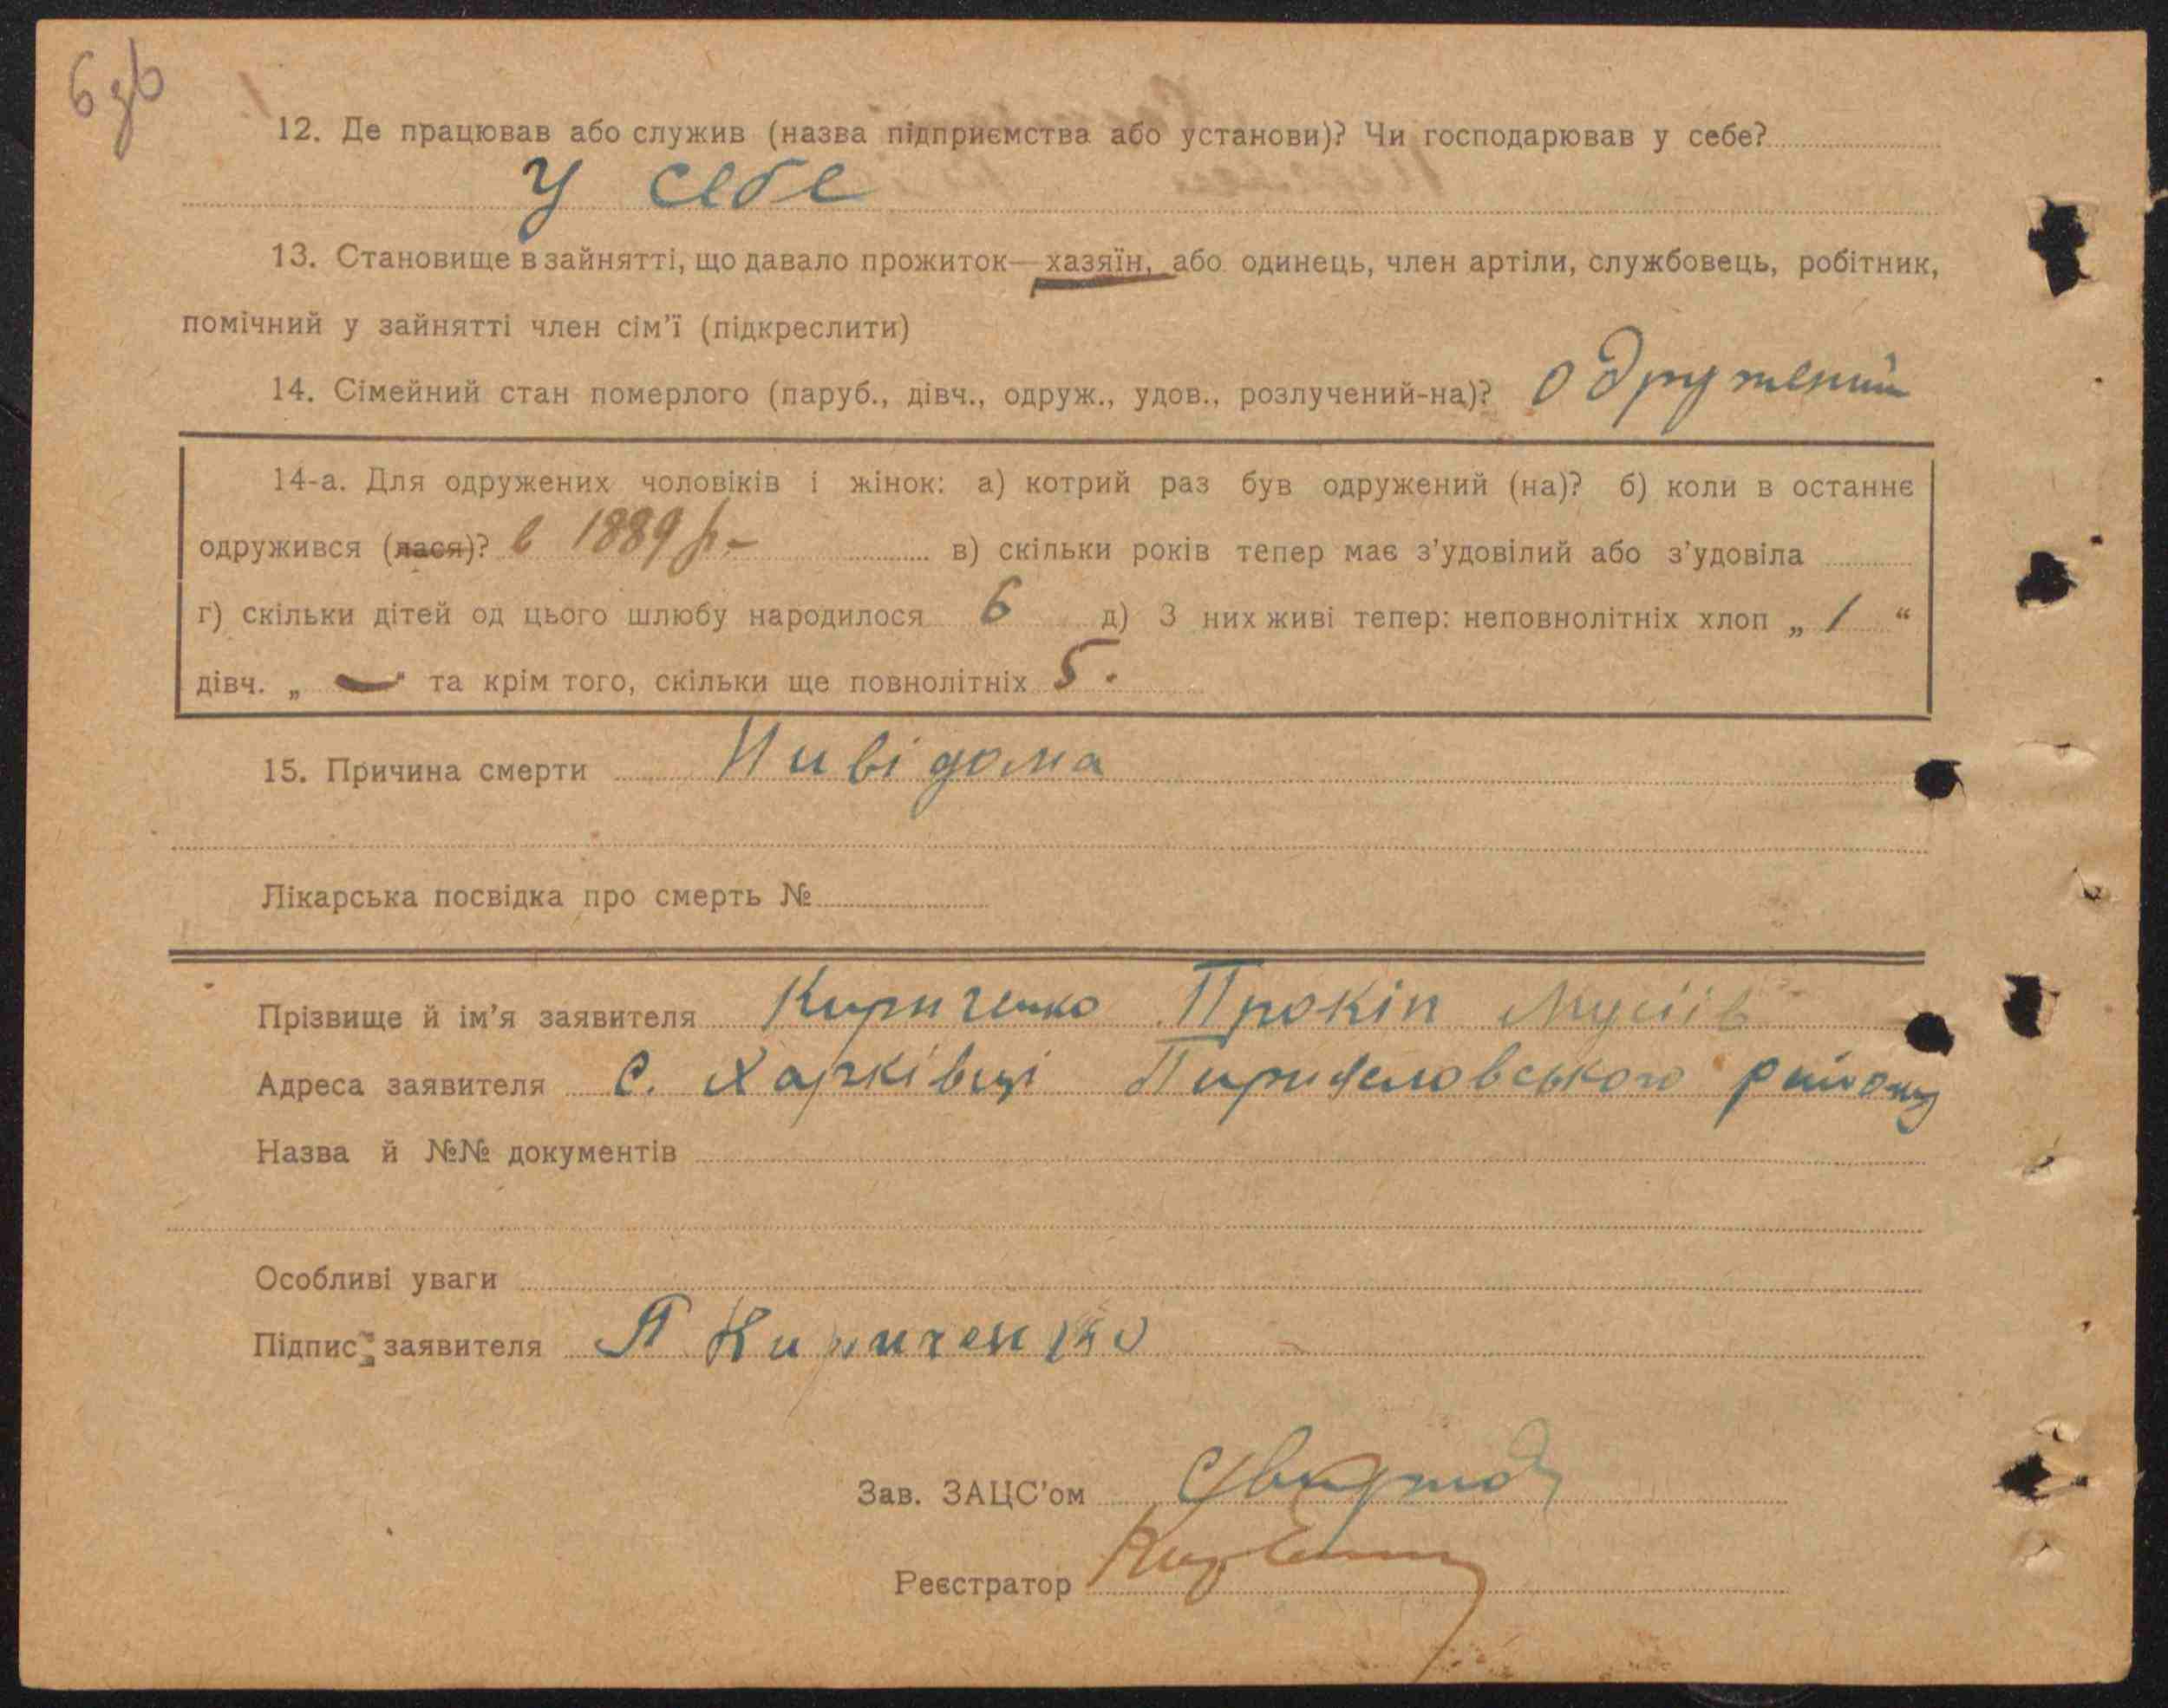 6 зв
12. Де працював або служив (назва підприємства або установи)? Чи господарював у себе?
У себе
13. Становище в зайнятті, що давало прожиток—хазяїн, або одинець, член артіли, службовець, робітник,
помічний у зайнятті член сім'ї (підкреслити)
14. Сімейний стан померлого (паруб., дівч., одруж., удов., розлучений-на)? одружений
14-а. Для одружених чоловіків і жінок: а) котрий раз був одружений (на)? б) коли в останнє
одружився (лася)? в 1889 р.- в) скільки років тепер має з'удовілий або з'удовіла
г) скільки дітей од цього шлюбу народилося 6 д) З них живі тепер: неповнолітніх хлоп „ 1 “
дівч. „ — “ та крім того, скільки ще повнолітніх 5.
15. Причина смерти Нивідома
Лікарська посвідка про смерть №
Прізвище й ім'я заявителя Кириченко Прокіп Мусіів
Адреса заявителя с. Харківці Пириселовського району
Назва й №№ документів
Особливі уваги
Підпис заявителя П Кириченко
Зав. ЗАЦС'ом
Реєстратор